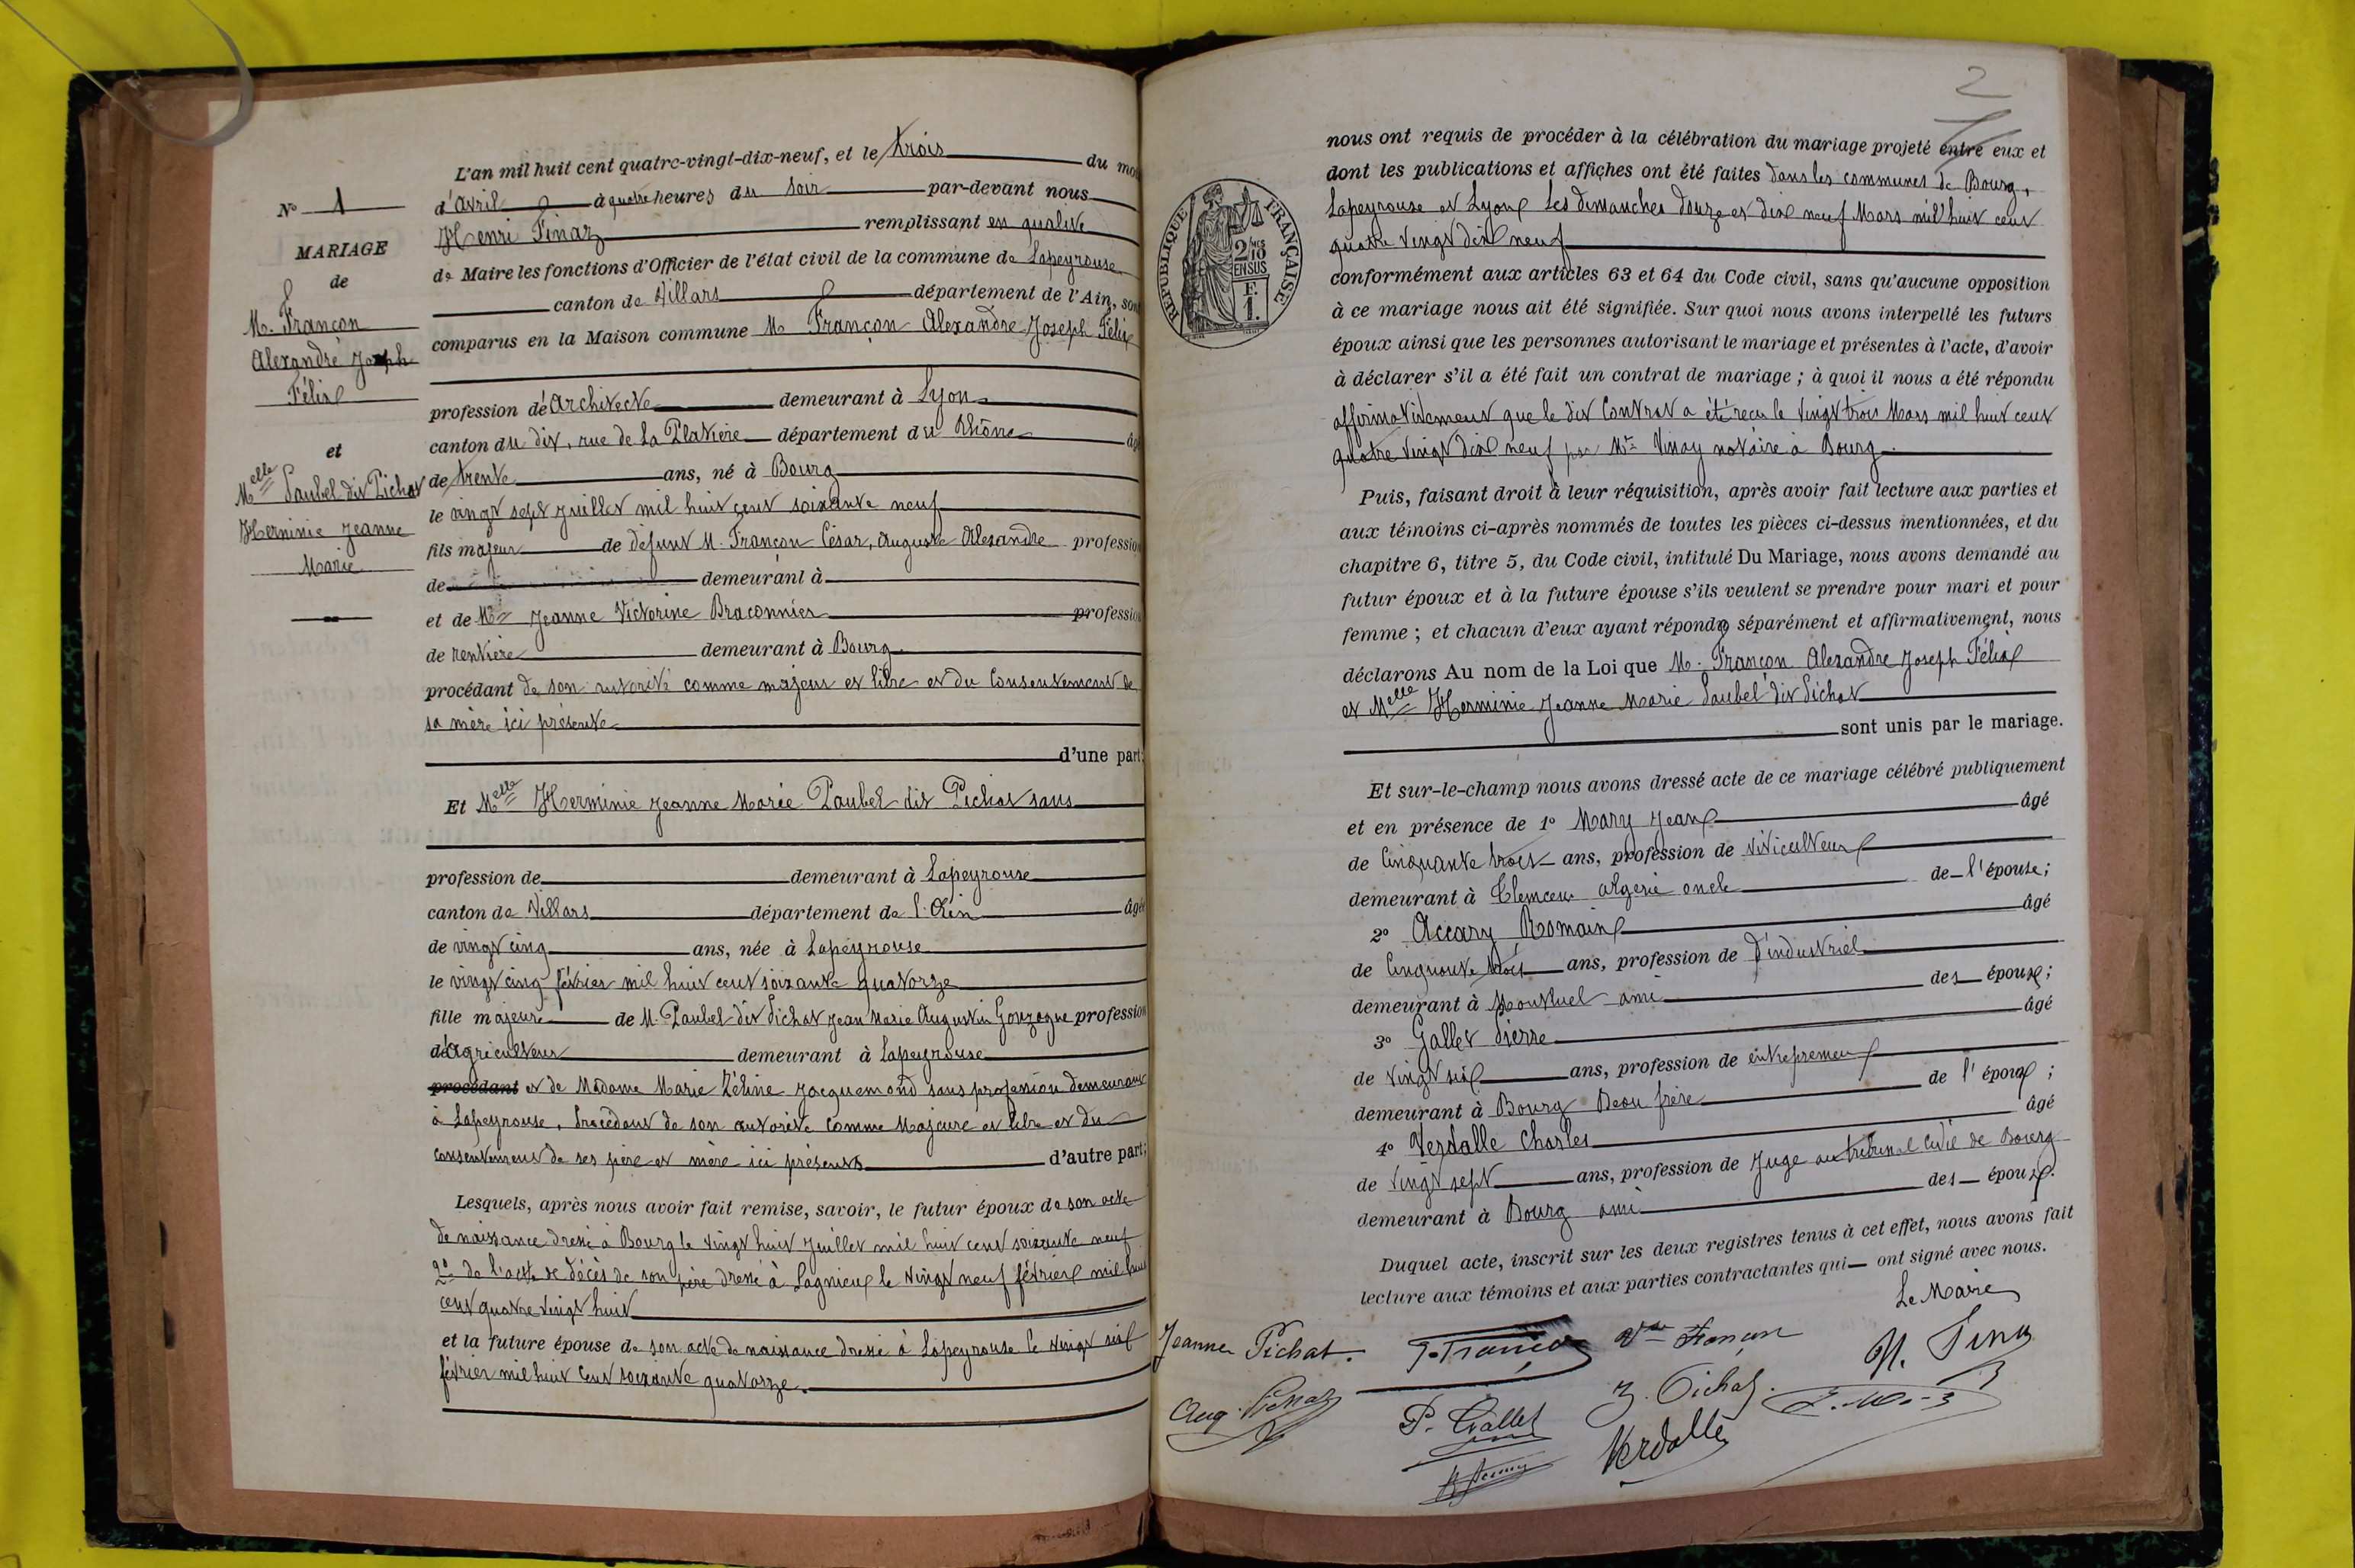 N° 1
MARIAGE
de
M. Françon
Alexandre Joseph
Félix
et
Melle Paubel dit Pichat
Herminie Jeanne
Marie
L'an mil huit cent quatre-vingt-dix-neuf, et le trois du mois
d'avril à quatre heures du soir par-devant nous
Henri Finaz remplissant en qualité
de Maire les fonctions d'Officier de l'état civil de la commune de Lapeyrouse
canton de Villars département de l'Ain, sont
comparus en la Maison commune M Françon Alexandre Joseph Félix
profession d'Architecte demeurant à Lyon
canton du dit, rue de la Platière département du Rhône âgé
de trente ans, né à Bourg
le vingt sept juillet mil huit cent soixante neuf
fils majeur de défunt M. Françon César, Auguste Alexandre profession
de demeurant à
et de Me Jeanne Victorine Braconnier profession
de rentière demeurant à Bourg
procédant de son autorité comme majeur et libre et du consentement de
sa mère ici présente
d'une part;
Et Melle Herminie Jeanne Marie Paubel dit Pichat sans
profession de demeurant à Lapeyrouse
canton de Villars département de l'Ain âgée
de vingt cinq ans, née à Lapeyrouse
le vingt cinq février mil huit cent soixante quatorze
fille majeure de M. Paubel dit Pichat Jean Marie Augustin Gonzague profession
d'Agriculteur demeurant à Lapeyrouse
procédant et de Madame Marie Zéline Jacquemond sans profession demeurant
à Lapeyrouse, Procédant de son autorité comme Majeure et libre et du
consentement de ses père et mère ici présents d'autre part;
Lesquels, après nous avoir fait remise, savoir, le futur époux de son acte
de naissance dressé à Bourg le vingt huit juillet mil huit cent soixante neuf
2° de l'acte de décès de son père dressé à Lagnieu le vingt neuf février mil huit
cent quatre vingt huit
et la future épouse de son acte de naissance dressé à Lapeyrouse le vingt six
février mil huit cent soixante quatorze.
2
RÉPUBLIQUE FRANÇAISE
2/10 EN SUS
F.
1.
nous ont requis de procéder à la célébration du mariage projeté entre eux et
dont les publications et affiches ont été faites dans les communes de Bourg,
Lapeyrouse et Lyon les dimanches douze et dix neuf Mars mil huit cent
quatre vingt dix neuf
conformément aux articles 63 et 64 du Code civil, sans qu'aucune opposition
à ce mariage nous ait été signifiée. Sur quoi nous avons interpellé les futurs
époux ainsi que les personnes autorisant le mariage et présentes à l'acte, d'avoir
à déclarer s'il a été fait un contrat de mariage; à quoi il nous a été répondu
affirmativement que le dit Contrat a été reçu le vingt trois Mars mil huit cent
quatre vingt dix neuf par Me Vinay notaire à Bourg
Puis, faisant droit à leur réquisition, après avoir fait lecture aux parties et
aux témoins ci-après nommés de toutes les pièces ci-dessus mentionnées, et du
chapitre 6, titre 5, du Code civil, intitulé Du Mariage, nous avons demandé au
futur époux et à la future épouse s'ils veulent se prendre pour mari et pour
femme; et chacun d'eux ayant répondu séparément et affirmativement, nous
déclarons Au nom de la Loi que M. Françon Alexandre Joseph Félix
et Melle Herminie Jeanne Marie Paubel dit Pichat
sont unis par le mariage.
Et sur-le-champ nous avons dressé acte de ce mariage célébré publiquement
et en présence de 1° Mary Jean âgé
de Cinquante trois ans, profession de viticulteur
demeurant à Algérie oncle de l'épouse;
2° Accary Romain âgé
de Cinquante trois ans, profession de d'industriel
demeurant à Montluel ami des époux;
3° Gallet Pierre âgé
de vingt six ans, profession de entrepreneur
demeurant à Bourg Beau frère de l'époux;
4° Verdalle Charles âgé
de vingt sept ans, profession de Juge au tribunal civil de Bourg
demeurant à Bourg ami des époux.
Duquel acte, inscrit sur les deux registres tenus à cet effet, nous avons fait
lecture aux témoins et aux parties contractantes qui ont signé avec nous.
Le Maire
Jeanne Pichat. Françon Vve Françon H. Finaz
Aug. Pichat P. Gallet Z. Pichat.
Verdalle